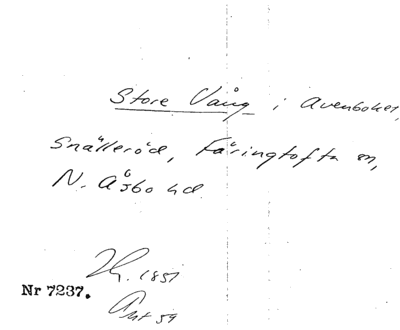 Store Vång i Avenboket,
Snälleröd, Färingtofta sn,
N. Åsbo hd.
1851
Nr 7237.
Ant 59